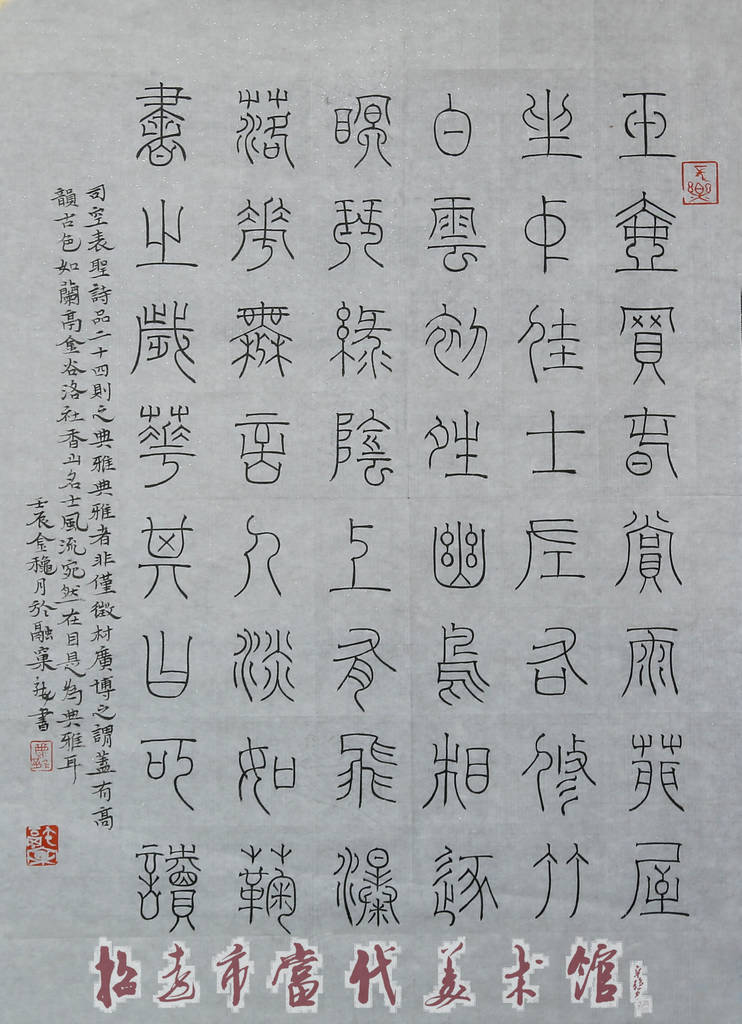 玉壺買春賞雨茆屋
坐中佳士左右修竹
白雲初晴幽鳥相逐
瞑琴綠陰上有飛瀑
落華無言人淡如蘜
書之歲華其曰可讀
司空表聖詩品二十四則之典雅典雅者非僅徵材廣博之謂蓋有高
韻古色如蘭亭金谷洛社香山名士風流宛然在目是為典雅耳
壬辰金穐月於融巢書
招远市當代美术馆